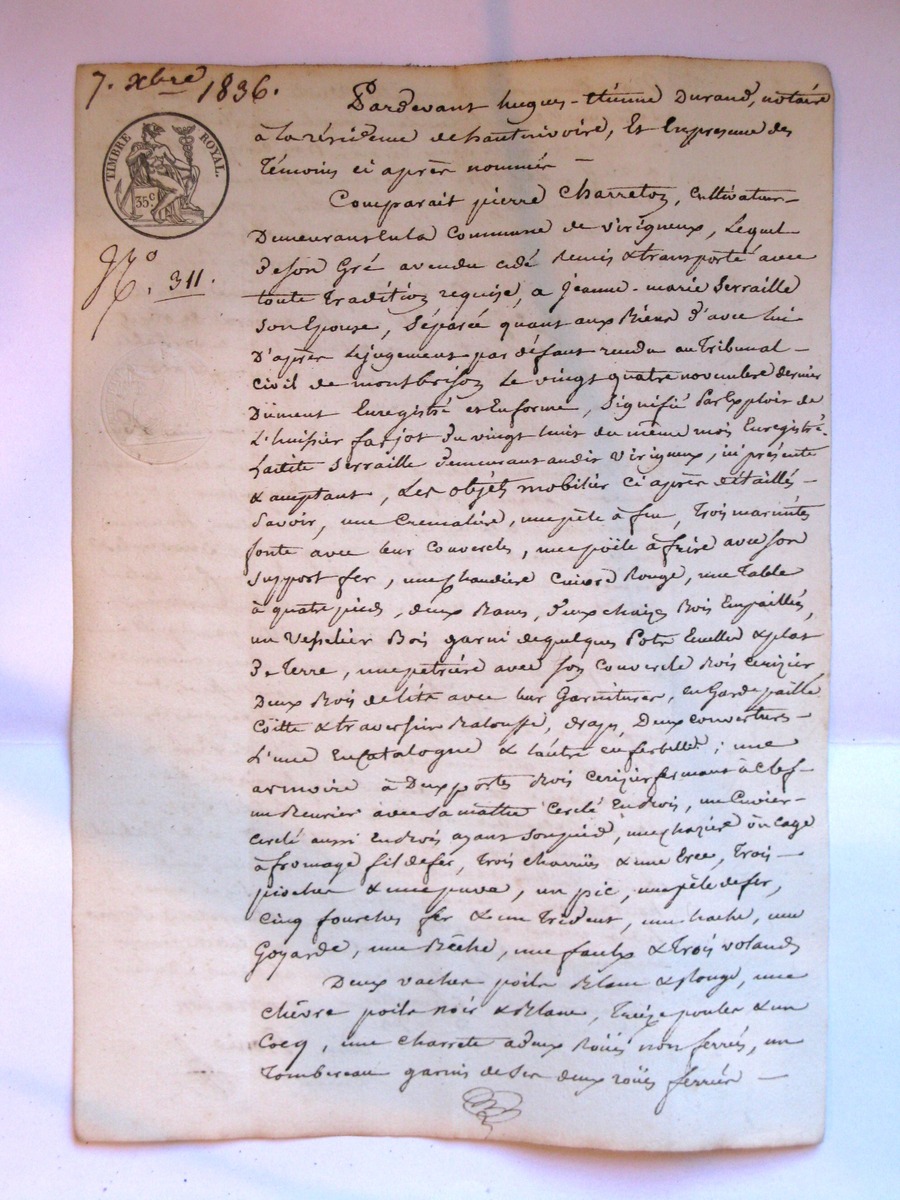 7. Xbre 1836.
TIMBRE ROYAL.
35c
No. 311.
Pardevant hugues-Etienne Durand, notaire
à la résidence de hautrivoire, Et En presence des
Témoins ci après nommés —
Comparait pierre Charretoz, Cultivateur
Demeurans En la Commune de Virigneux, Lequel
De son Gré a vendu cédé remis & transporté avec
toute Tradition requise, a jeanne-marie Serraille
son Epouse, Séparée quant aux Biens d'avec lui
D'après le jugement par défaut rendu au Tribunal
Civil de montbrison Le vingt quatre novembre dernier
Dûment Enregistré et En forme, Signifié Par Exploit de
L'huissier farjot du vingt huit du même mois Enregistré
Ladite Serraille demeurant audit Virigneux, ici présente
& acceptant, Les objets mobilier ci après détaillés —
Savoir, une Crematiére, une pèle à feu, Trois marmites
fonte avec leur Couvercles, une pöile à frire avec son
support fer, une chaudière Cuivre Rouge, une Table
à quatre pieds, deux Bancs, deux chaizes Bois Empaillés,
un Vesselier Bois garni de quelques Pots Ecuelles & plat
De Terre, une petrière avec son Couvercle Bois Cerizier
Deux Bois de lits avec leur Garnitures, en Garde paille
Coitte & traversin Balouffe, draps, Deux couvertures
L'une En Catalogne & l'autre en ; une
armoire à Deux portes Bois Cerizier fermant à Clef
un Beurrier avec sa Cerclé En Bois, un Cuvier
Cerclé aussi En Bois ayant son pied, une chazière ou Cage
à fromage fil de fer, Trois charrües & une Erce, Trois —
pioches & une , un pic, une pèle de fer,
Cinq fourches fer & un Trident, une hache, une
Goyarde, une Bêche, une faulx & Trois volands
Deux vaches poils Blanc & Rouge, une
chèvre poils noir & Blanc, Treize poules & un
Cocq, une charrete à deux Roües non ferrés, un
Tombereau garnis de Ses deux roües ferrées —